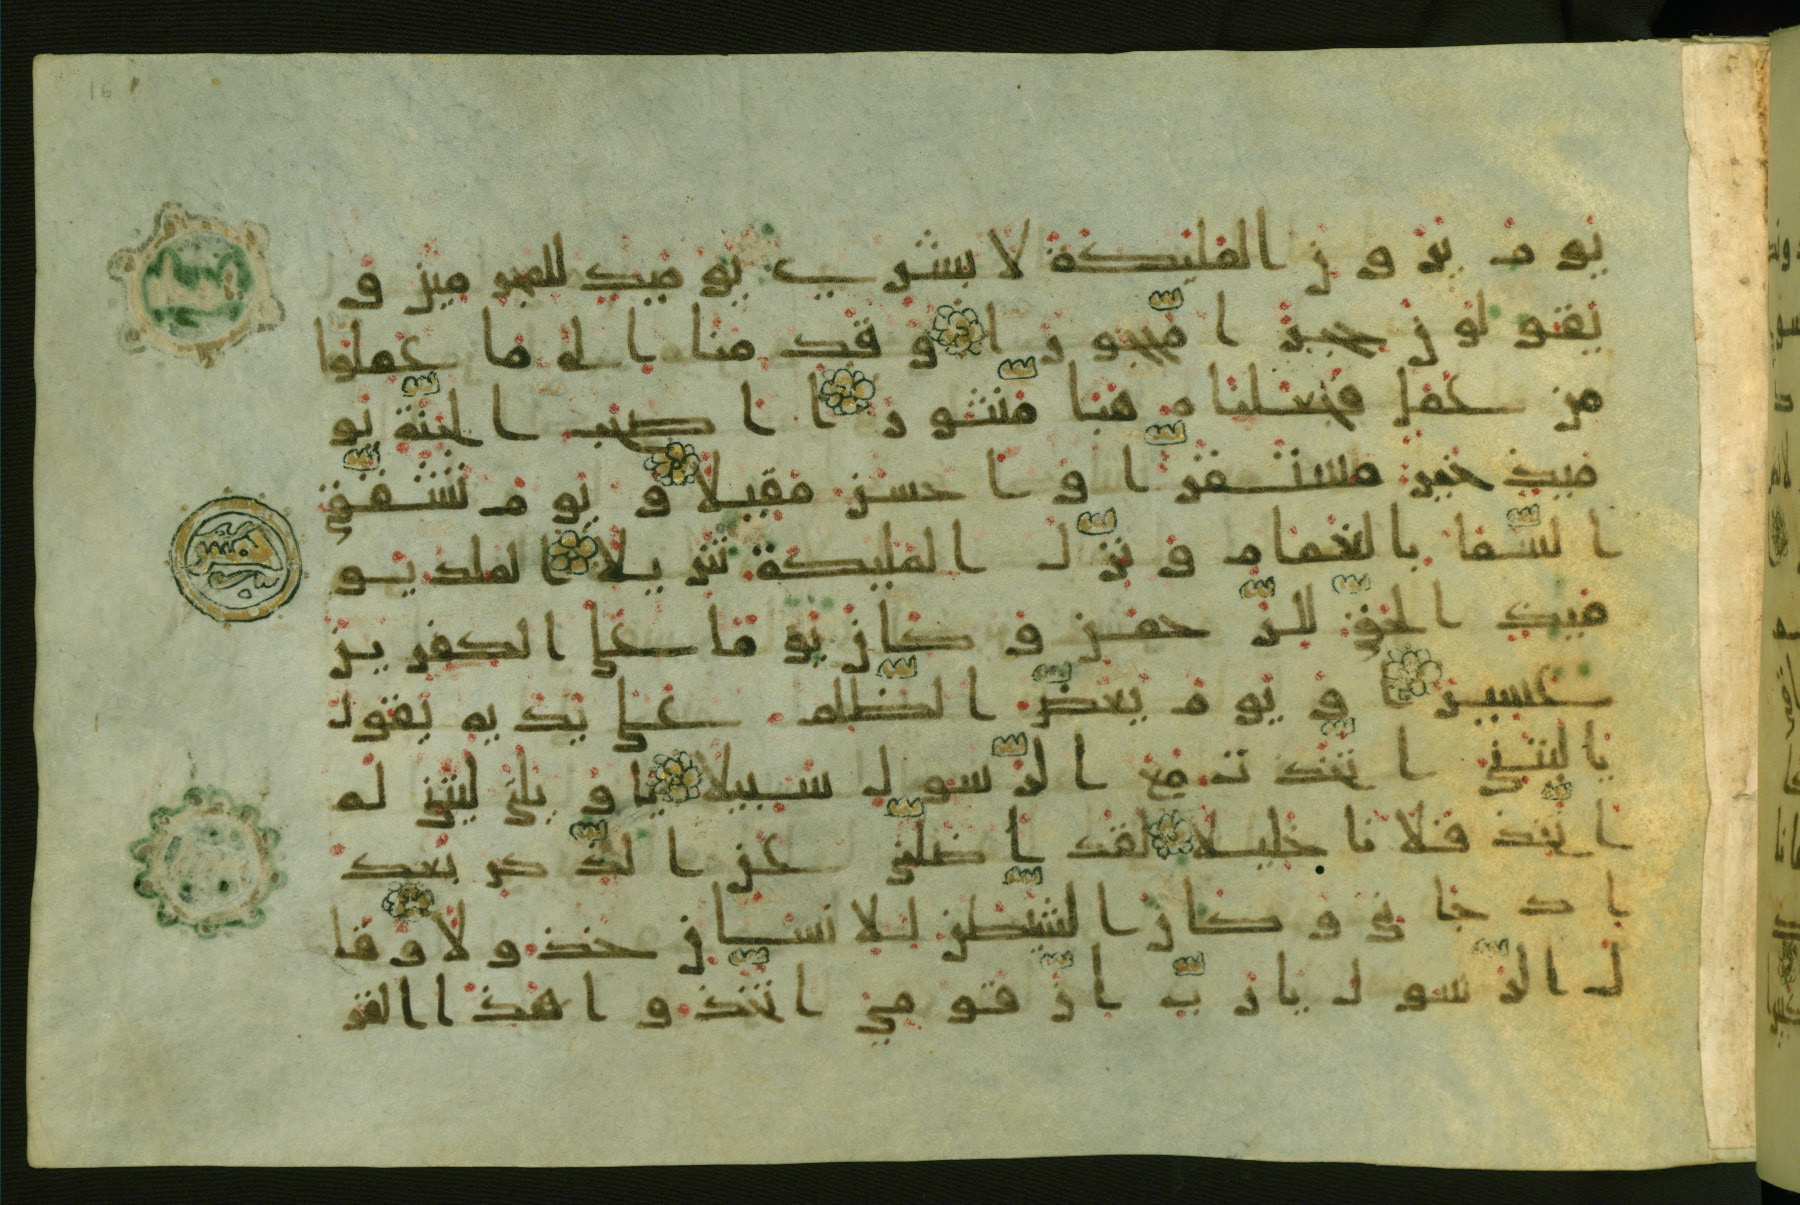 يوم يرون المليكة لا بشرى يوميد للمجرمين و
يقولون حجرا محجورا وقدمنا الى ما عملوا
من عمل فجعلناه هبا منثورا اصحب الجنة يو
ميذ خير مستقرا واحسن مقيلا ويوم تشقق
السما بالغمام ونزل المليكة تنزيلا الملك يو
ميذ الحق للرحمن وكان يوما على الكفرين
عسيرا ويوم يعض الظلم على يديه يقول
ياليتني اتخذت مع الرسول سبيلا ياويلتي ليتني لم
اتخذ فلانا خليلا لقد اضلني عن الذكر بعد
اذ جاني وكان الشيطن للانسان خذولا وقا
ل الرسول يارب ان قومي اتخذوا هذا القر
خمس
16